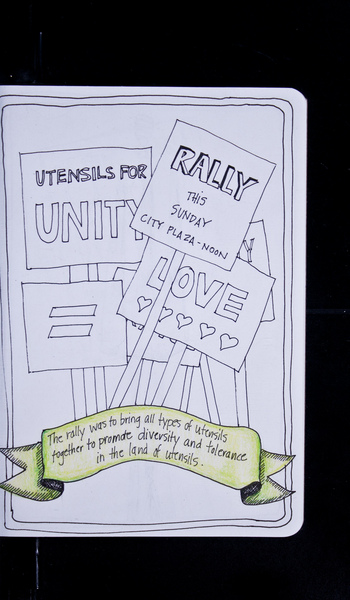 UTENSILS FOR
UNITY
RALLY
THIS
SUNDAY
CITY PLAZA-NOON
Y
LOVE
=
The rally was to bring all types of utensils
together to promote diversity and tolerance
in the land of utensils.